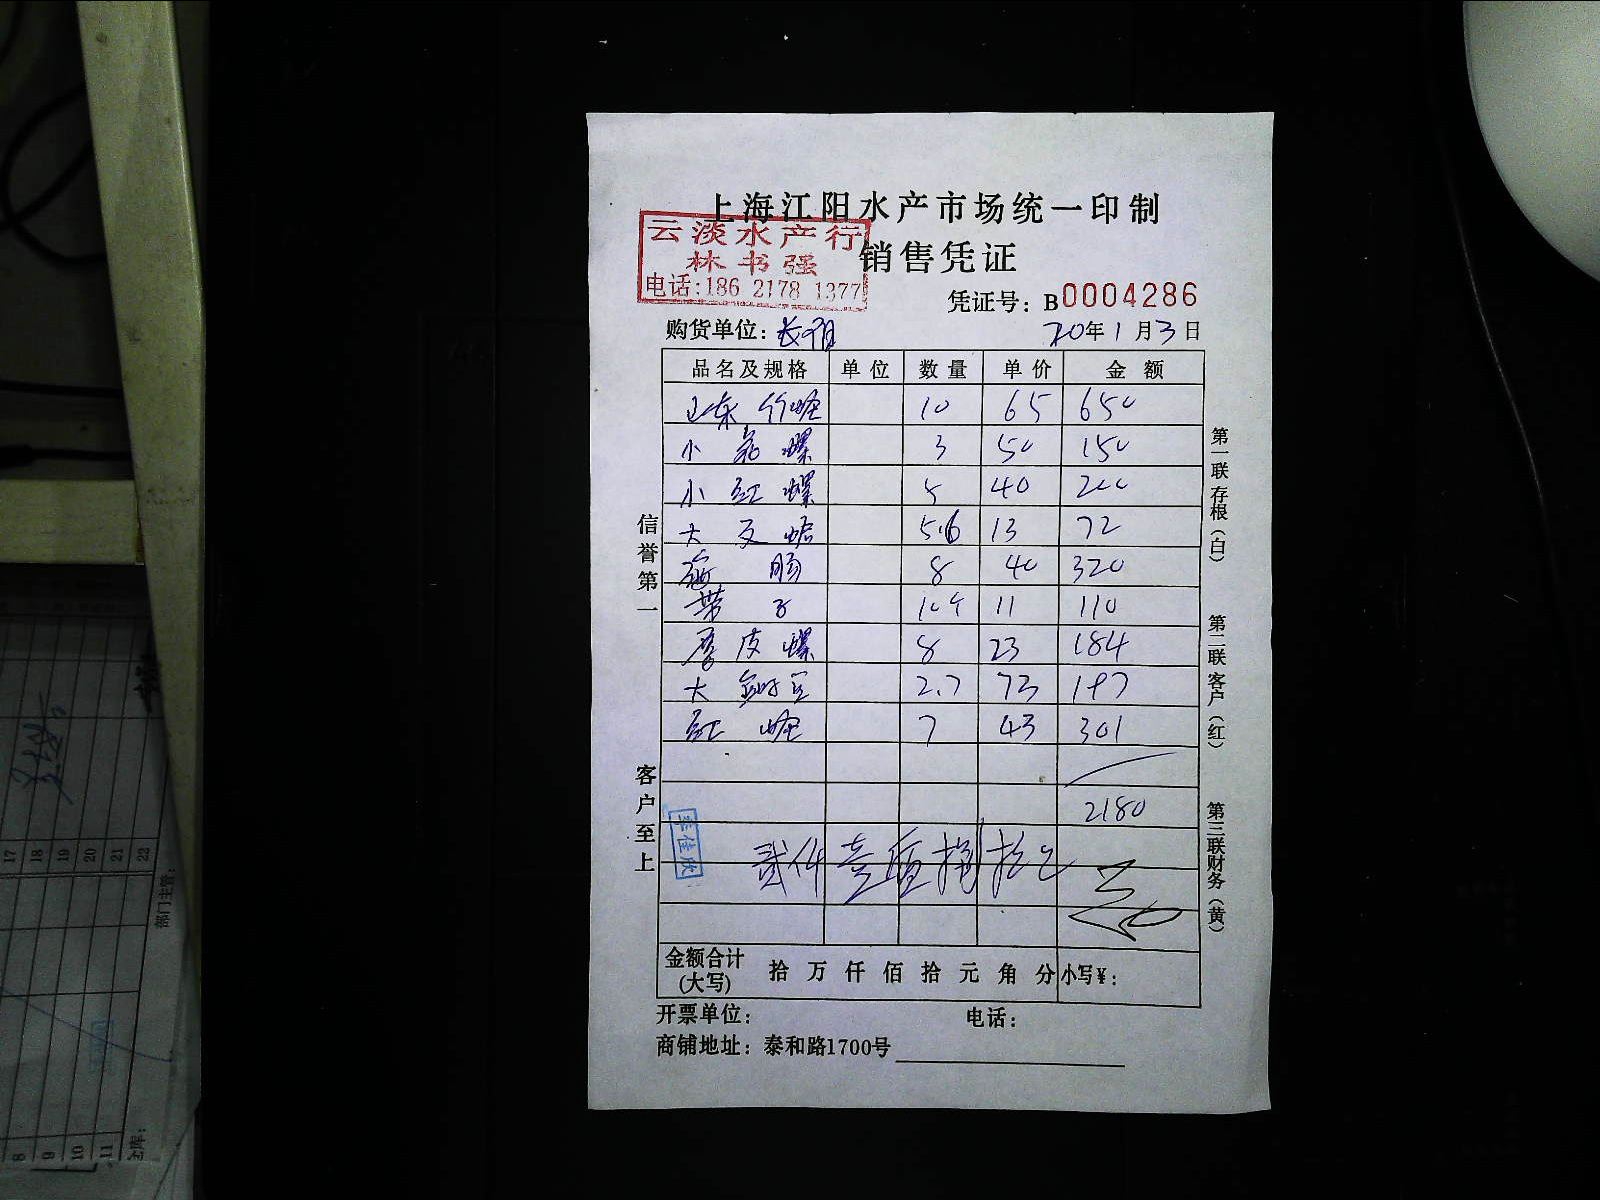 上海江阳水产市场统一印制
云淡水产行
林书强
电话:186 2178 1377
销售凭证
凭证号: B0004286
购货单位:
20年1月3日
品名及规格 单位 数量 单价 金额
山东竹蛏 10 65 650
小 螺 3 50 150
小红螺 5 40 200
大 蛤 5.6 13 72
海肠 8 40 320
带子 10.4 11 110
皮螺 8 23 184
大 2.7 73 197
红蛏 7 43 301
2180
贰仟壹佰捌拾元
李佳欣
金额合计
(大写)
拾万仟佰拾元角分 小写¥:
开票单位: 电话:
商铺地址: 泰和路1700号
信誉第一
客户至上
第一联存根(白)
第二联客户(红)
第三联财务(黄)
17
18
19
20
21
22
部门主管:
8
9
10
11